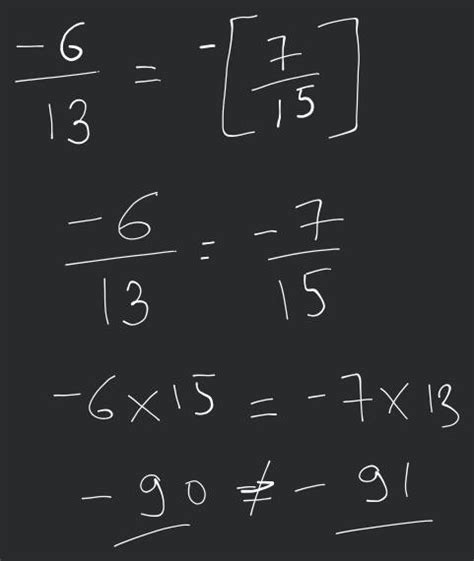 -6/13 = -[7/15]
-6/13 = -7/15
-6×15 = -7×13
-90 ≠ -91